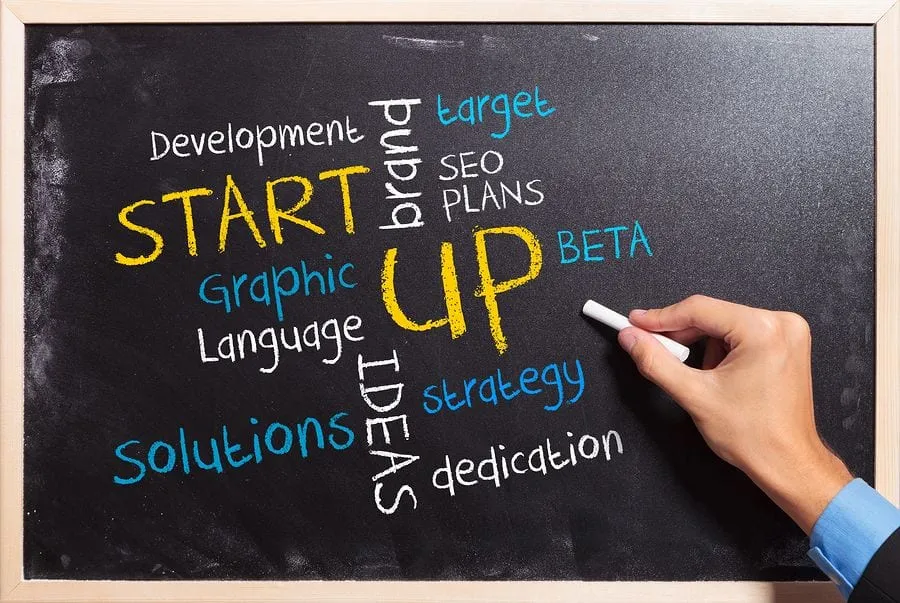 Development
brand
target
START
SEO
PLANS
UP
BETA
Graphic
Language
IDEAS
strategy
Solutions
dedication